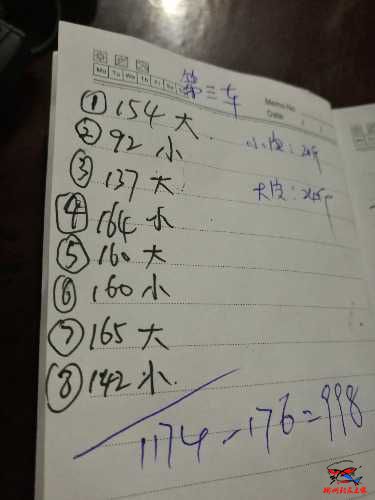 Mo Tu We Th Fr Sa
第三车
Memo No.
Date / /
① 154 大
② 92 小
小皮:
③ 137 大
大皮:
④ 164 小
⑤ 160 大
⑥ 160 小
⑦ 165 大
⑧ 142 小
1174-176=998